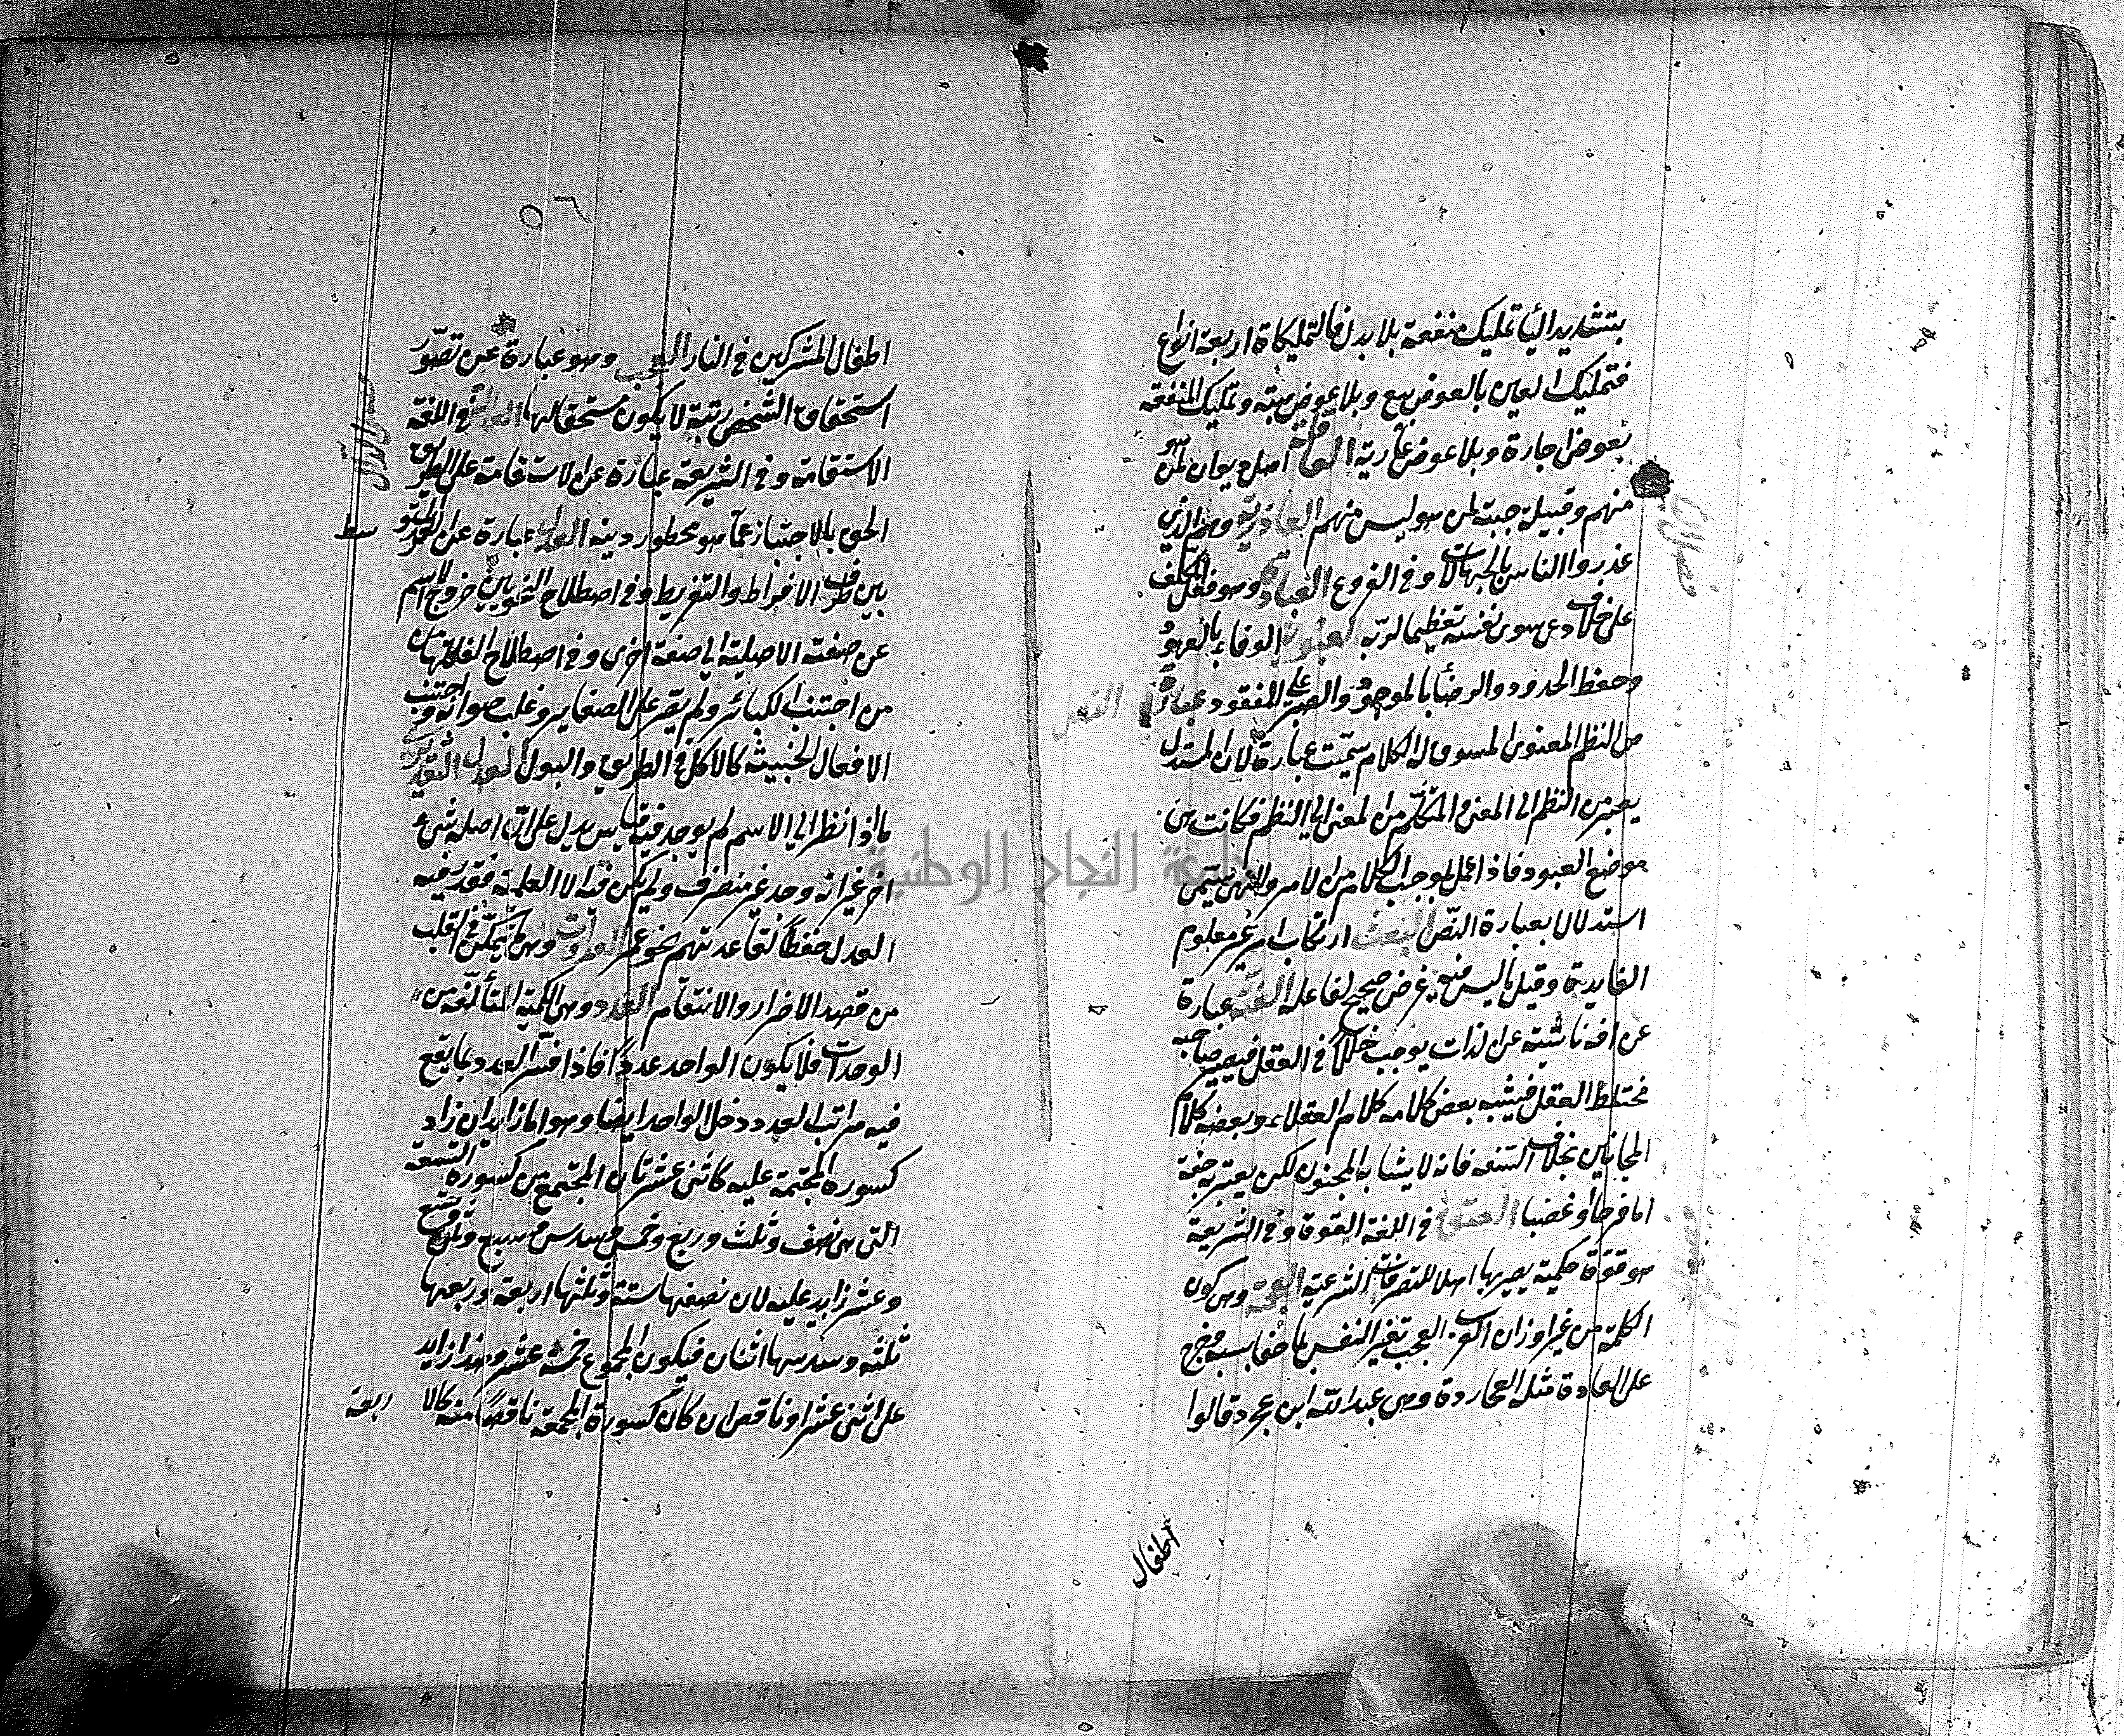 بتشديد اليا تمليك منفعة بلا بدل فالتمليكاة اربعة انواع
فتمليك العين بالعوض بيع وبلا عوض هبة وتمليك المنفعة
بعوض اجارة وبلا عوض عارية العاقلة اهل ديوان لمن هو
منهم وقبيلة حبته لمن هو ليس منهم العاذرية وهم الذين
عذروا الناس بالجهالات في الفروع العبادة وهو فعل المكلف
على خلاف هوى نفسه تعظيما لربه العبودية الوفاء بالعهود
وحفظ الحدود والرضأ بالموجود والصبر على المفقود عبارة النص
من النظم المعنوى المسوق له الكلام سميت عبارة لان المستدل
يعبر من النظم الى المعنى والمتكلم من المعنى الى النظم فكانت هى
موضع العبور فاذا عمل بموجب الكلام من الامر والنهى يسمى
استدلالا بعبارة النص العبث ارتكاب امر غير معلوم
الفايدة وقيل ما ليس فيه غرض صحيح لفاعله العته عبارة
عن افة ناشئة عن الذات يوجب خللا في العقل فيصير صاحبه
مختلط العقل فيشبه بعض كلامه كلام العقلاء وبعضه كلام
المجانين بخلاف السفه فانه لا يشابه المجنون لكن يعتريه خفة
اما فرحا او غضبا العتق في اللغة القوة وفي الشريعة
هو قوة حكمية يصير بها اهلا للتصرفات الشرعية العجمة وهى كون
الكلمة من غير اوزان العرب العجب تغير النفس بما خفا سببه وخرج
على العادة مثله العجاردة وهى عبد الله ابن عجرد قالوا
اطفال
اطفال المشركين في النار العجب وهو عبارة عن تصور
استحقاق الشخص رتبة لا يكون مستحقا لها العدالة في اللغة
الاستقامة وفي الشريعة عبارة عن الاستقامة على الطريق
الحق بالاجتناز عما هو محظور دينه العدل عبارة عن الامر المتو
سط
بين طرف الافراط والتفريط وفي اصطلاح النحويين خروج الاسم
عن صفته الاصلية الى صفة اخرى وفي اصطلاح الفقهاء من
من اجتنب الكبائر ولم يصر على الصغاير وغلب صوابه واجتنب
الافعال الخبيثة كالاكل في الطريق والبول العدل التقديرى
ما اذا نظر الى الاسم لم يوجد فيه قياس يدل على ان اصله شئ
اخر غير انه وجد غير منصرف ولم يكن فيه الا العلمية فقدر فيه
العدل حفظا لقاعدتهم نحو عمر العداوت وهى ما يتمكن في القلب
من قصد الاضرار والانتقام العدد وهى الكمية المتألفة من
الوحدات فلا يكون الواحد عددا فاذا فسر العدد بما يقع
فيه مراتب العدد دخل الواحد ايضا وهو اما زايد ان زاد
كسوره المجتمة عليه كاثنى عشر فان المجتمع من كسوره التسعة
التى هى نصف وثلث وربع وخمس وسدس وسبع وثمن وتسع
وعشر زايد عليه لان نصفها ستة وثلثها اربعة وربعها
ثلثة وسدسها اثنان فيكون المجموع خمسة عشر وهذا زايد
على اثنى عشر او ناقص ان كان كسورة المجمعة ناقصا منه كالا
ربعة
جامعة النجاح الوطنية